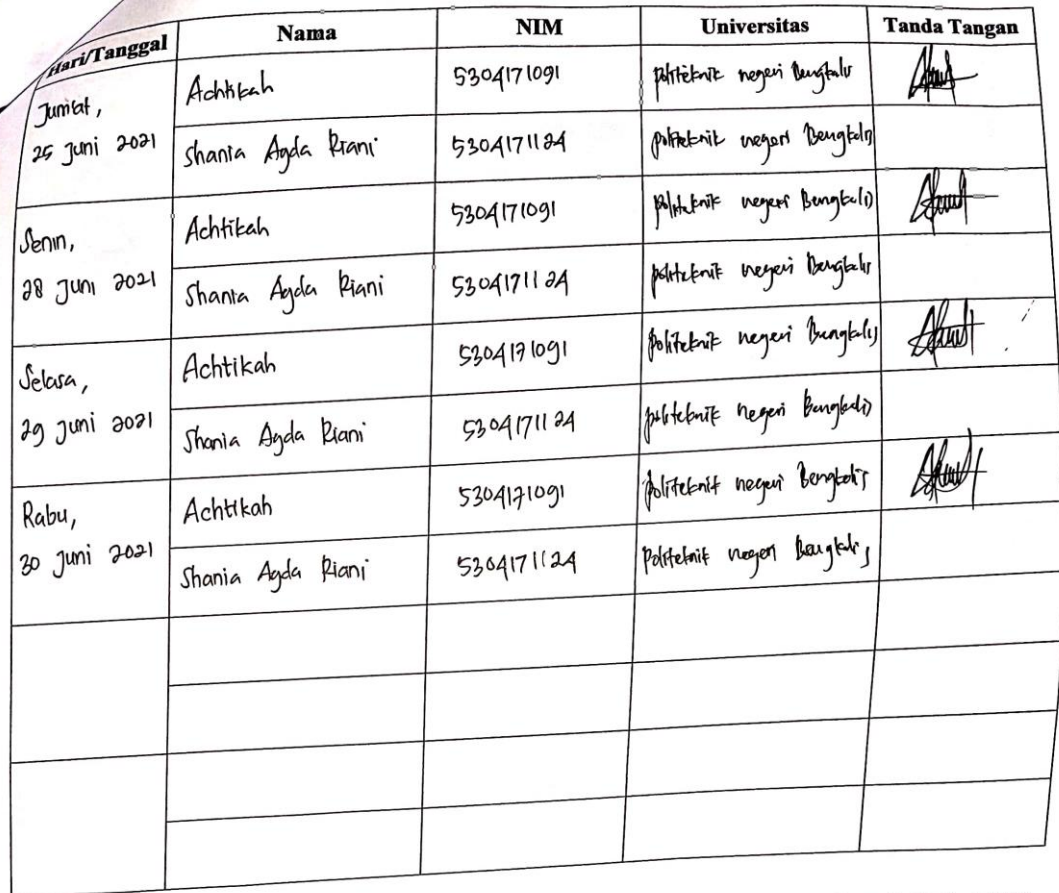 Hari/Tanggal Nama NIM Universitas Tanda Tangan
Jum'at,
25 Juni 2021
Achtikah 5304171091 politeknik negeri Bengkalis
Shania Agda Riani 5304171124 politeknik negeri Bengkalis
Senin,
28 Juni 2021
Achtikah 5304171091 politeknik negeri Bengkalis
Shania Agda Riani 5304171124 politeknik negeri Bengkalis
Selasa,
29 Juni 2021
Achtikah 5304171091 politeknik negeri Bengkalis
Shania Agda Riani 5304171124 politeknik negeri Bengkalis
Rabu,
30 Juni 2021
Achtikah 5304171091 politeknik negeri Bengkalis
Shania Agda Riani 5304171124 Politeknik negeri Bengkalis